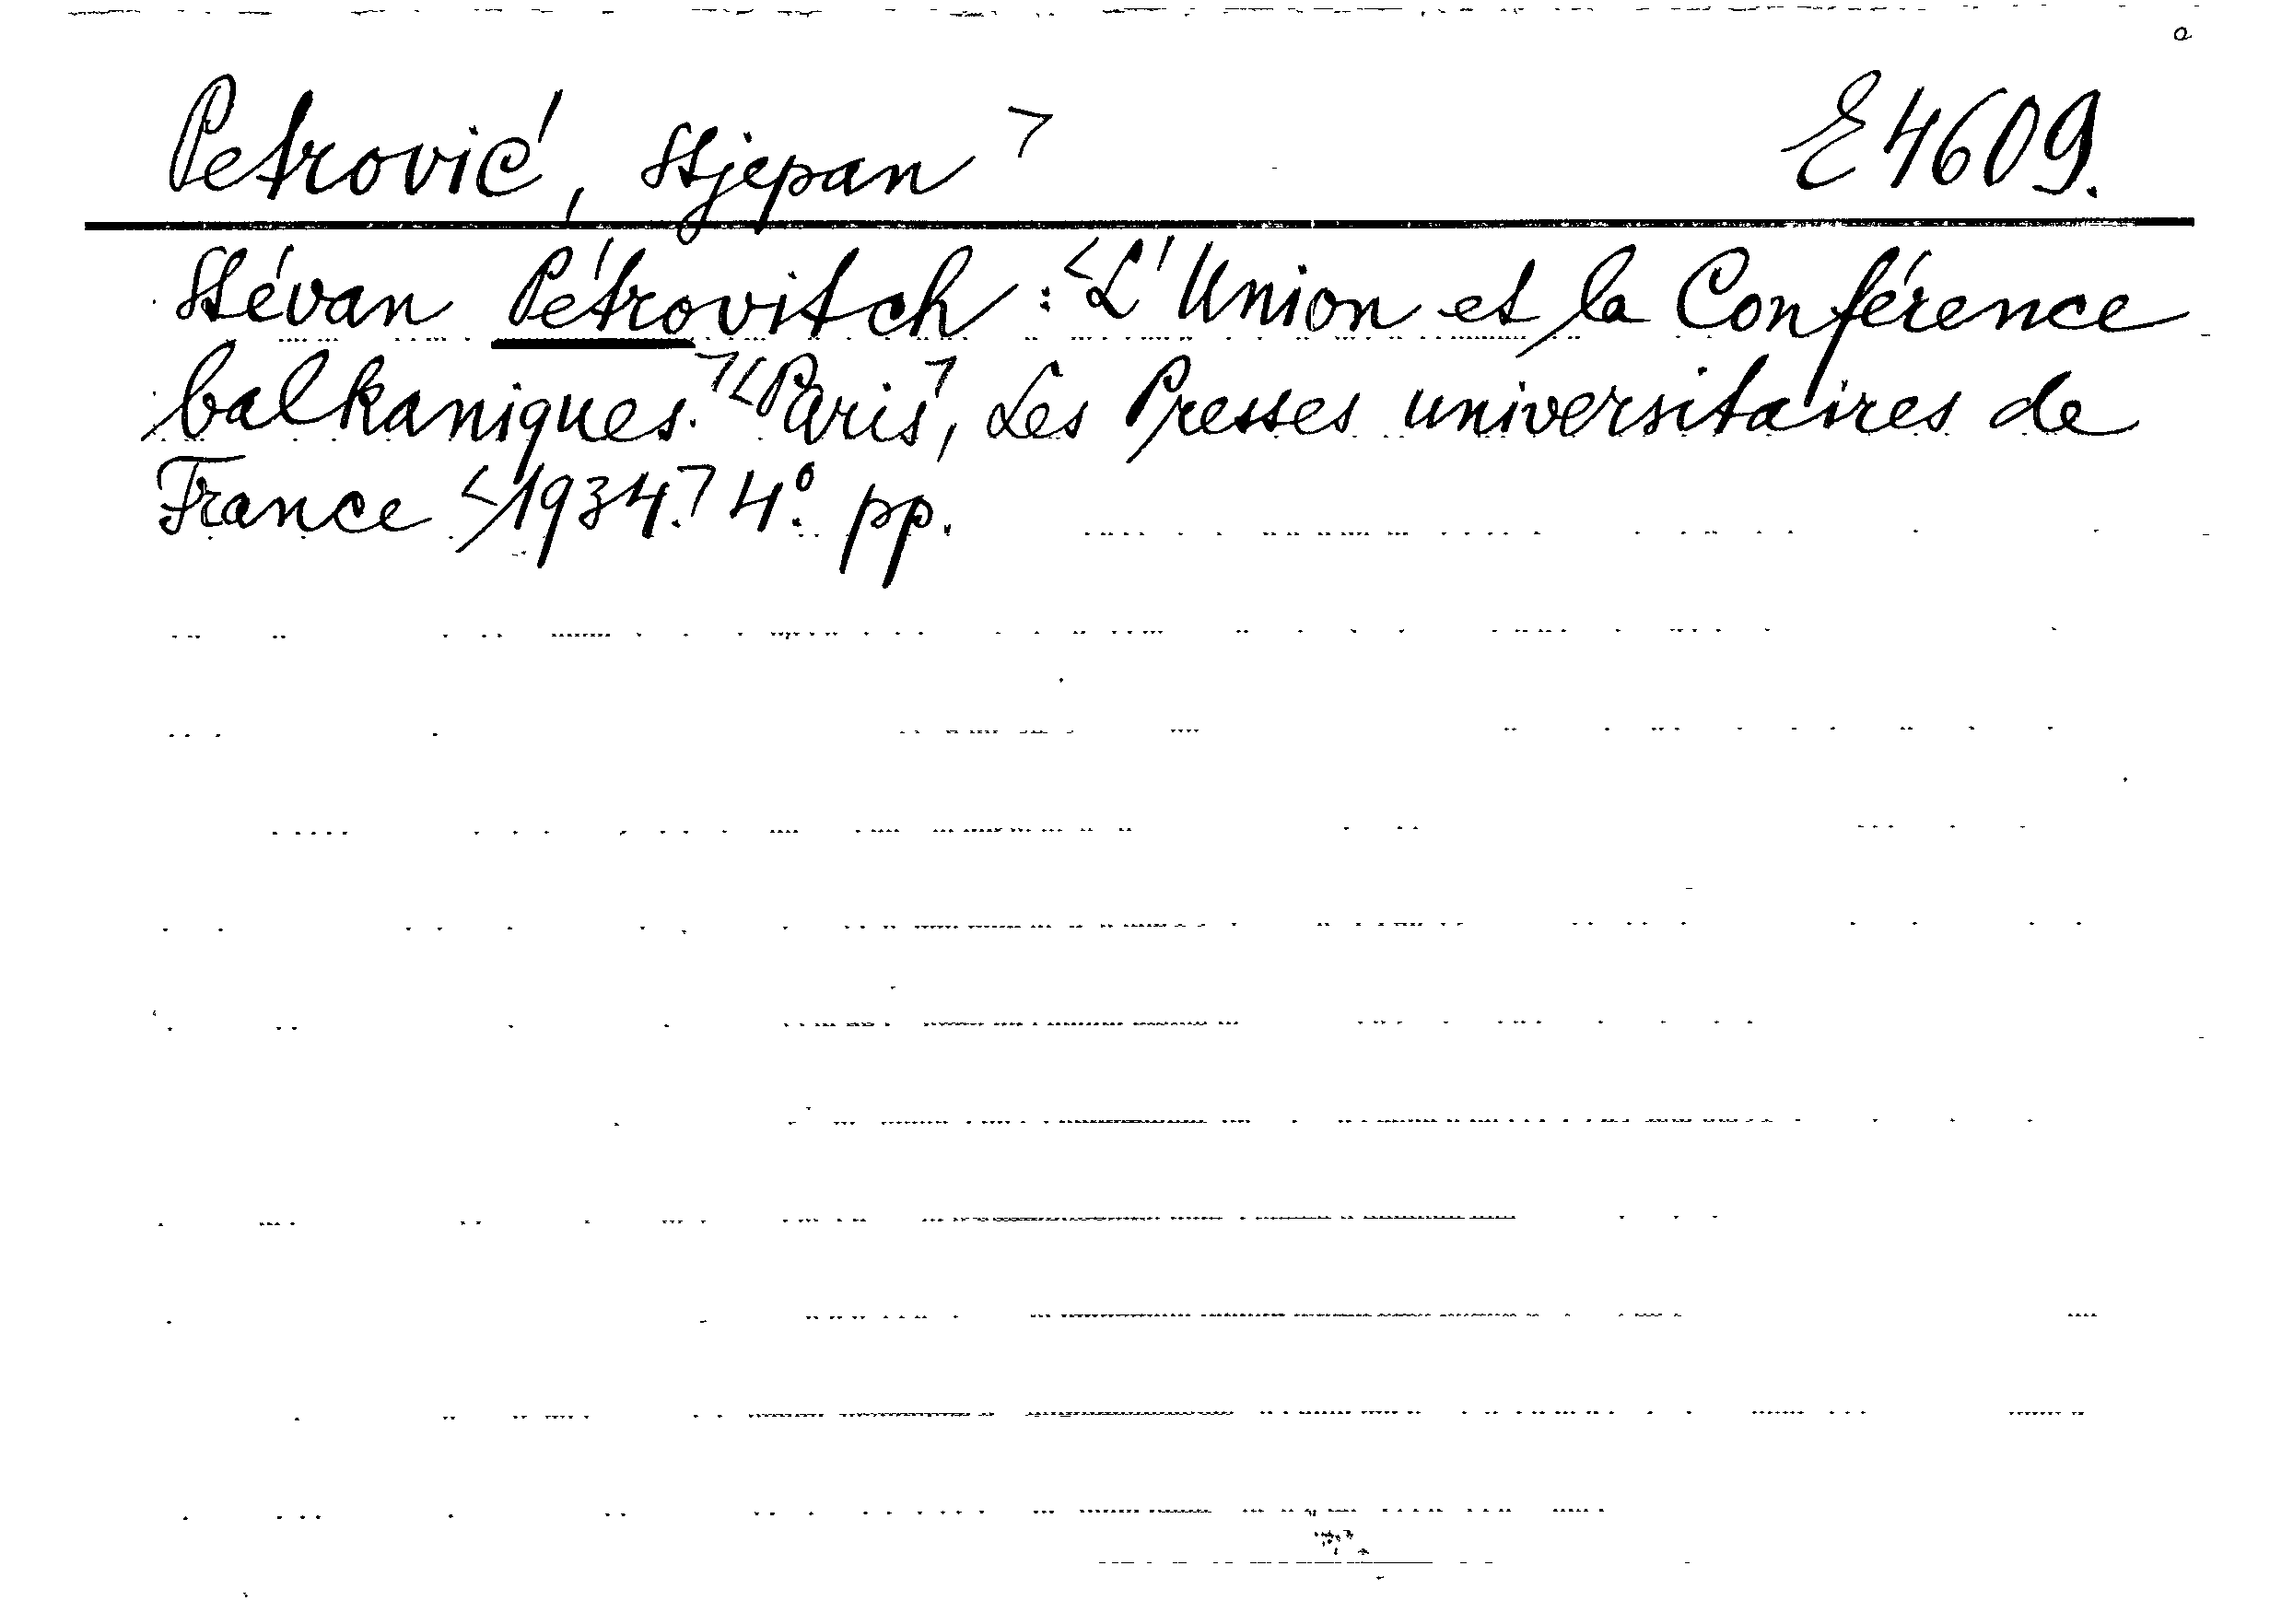 Petrović, Stjepan ㄱ E 4609.
Stévan Pétrovitch: <L'Union et la Conférence
balkaniques.ㄱ <Parisㄱ, Les Presses universitaires de
France <1934.ㄱ 4°. pp.